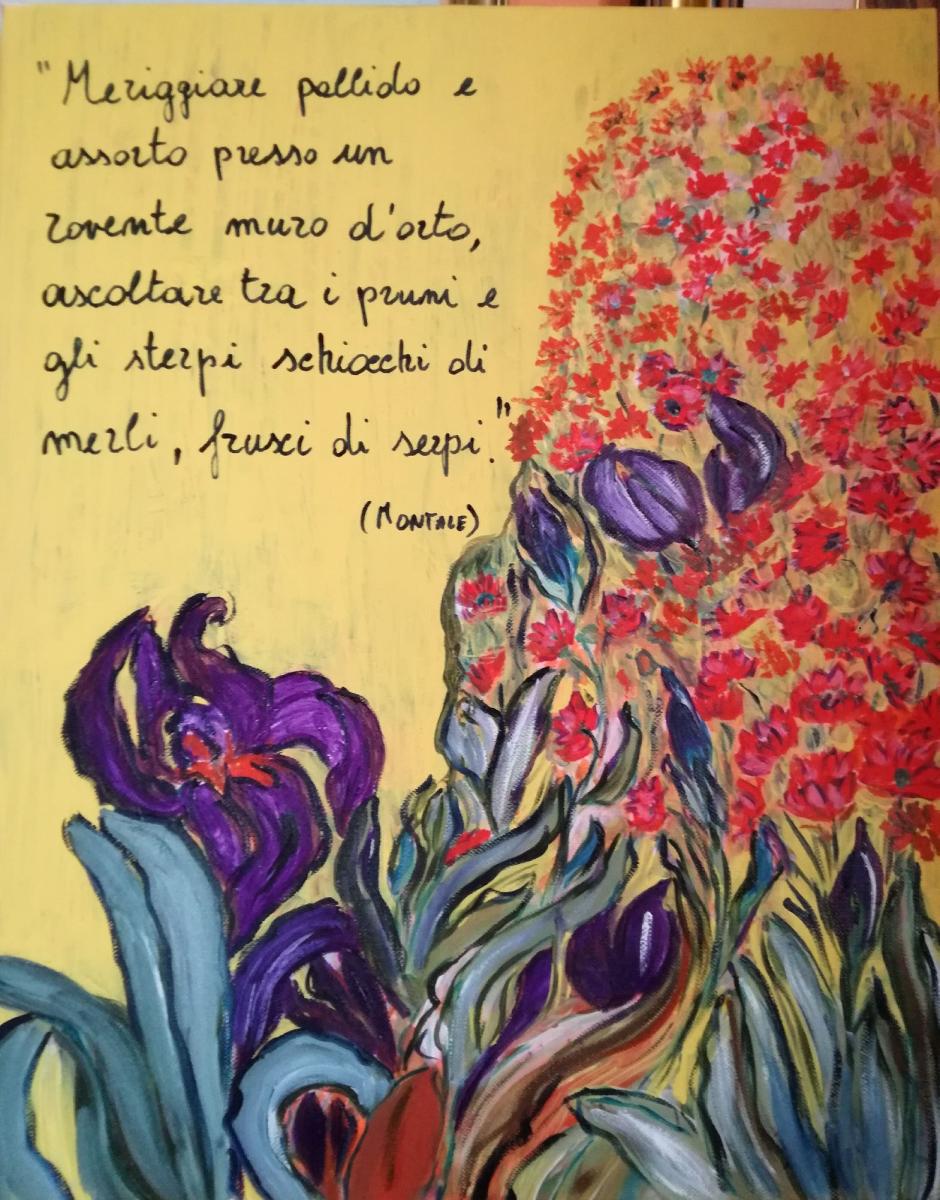 "Meriggiare pallido e
assorto presso un
rovente muro d'orto,
ascoltare tra i pruni e
gli sterpi schiocchi di
merli, frusci di serpi."
(MONTALE)